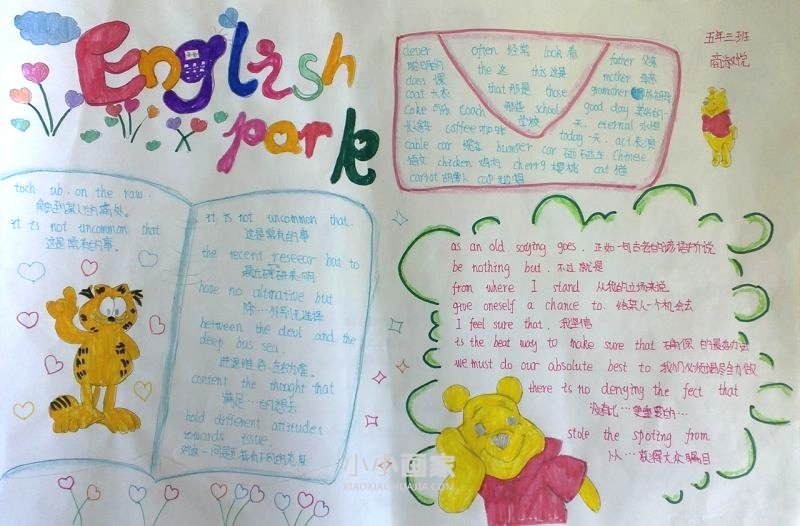 English
park
五年三班
clever often 经常 look 看 father 父亲
the 这 this 这是 mother 母亲
class 课
coat 大衣 that 那是 those gramother
coke 可乐 coach 那些 school good day 美好的一
coffee 咖啡 学校 天. eternal 永恒
cable car 缆车 bumper car 碰碰车 Chinese today 一天. act 表演
语文 chicken 鸡肉 cherry 樱桃 cat 猫
carrot 胡萝卜 cap
toch ub. on the raw.
触到某人的痛处。
it is not uncommon that
这是常有的事。
it is not uncommon that.
这是常有的事
the recent reseear but to
最近研究表明
have no altrnative but
除…外别无选择
between the devil and the
deep bus sea.
进退维谷.
content the thought that
满足…的想法
hold different attitudes
towards issue.
对这一问题有不同的态度
as an old saying goes. 正如一句古老的谚语所说
be nothing but. 不过就是
from where I stand 从我的立场来说
give oneself a chance to. 给某人一个机会去
I feel sure that. 我坚信
is the beat way to make sure that 确保 的最好办法
we must do our absolute best to 我们必须竭尽全力做
there is no denying the fect that
没有比…更重要的…
stole the spoting from
从…获得大众瞩目
小小画家
XIAOXIAOHUAJIA.COM